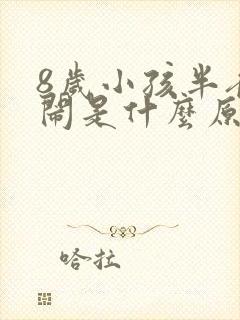 8歲小孩半
鬧是什麼原
哈拉